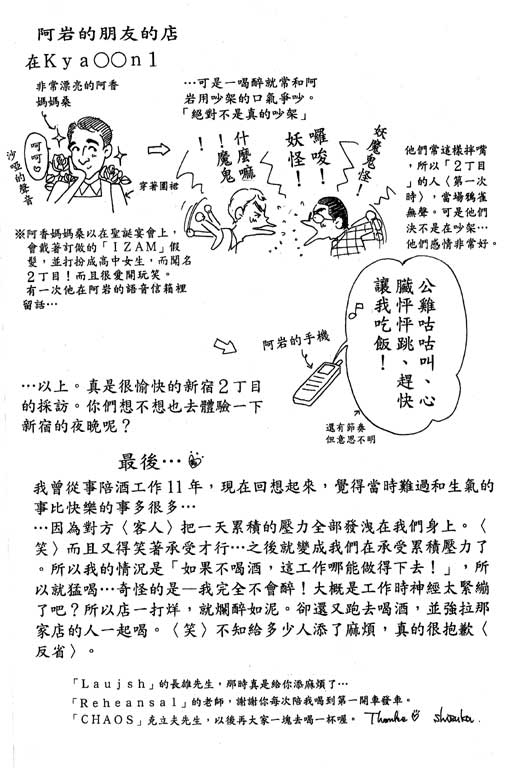 阿岩的朋友的店
在Kya○○n1
非常漂亮的阿香
媽媽桑
呵呵
沙啞的聲音
穿著圍裙
…可是一喝醉就常和阿
岩用吵架的口氣爭吵。
「絕對不是真的吵架」
什麼嘛
!魔鬼
!
囉唆!
妖怪!
妖魔鬼怪!
他們常這樣拌嘴
,所以「2丁目
」的人〈第一次
時〉,當場鴉雀
無聲。可是他們
決不是在吵架…
他們感情非常好。
※阿香媽媽桑以在聖誕宴會上,
會戴著訂做的「IZAM」假
髮,並打扮成高中女生,而聞名
2丁目!而且很愛開玩笑。
有一次他在阿岩的語音信箱裡
留話…
公雞咕咕叫、心
臟怦怦跳、趕快
讓我吃飯!
阿岩的手機
還有節奏
但意思不明
…以上。真是很愉快的新宿2丁目
的採訪。你們想不想也去體驗一下
新宿的夜晚呢?
最後…
我曾從事陪酒工作11年,現在回想起來,覺得當時難過和生氣的
事比快樂的事多很多…
…因為對方〈客人〉把一天累積的壓力全部發洩在我們身上。〈
笑〉而且又得笑著承受才行…之後就變成我們在承受累積壓力了
。所以我的情況是「如果不喝酒,這工作哪能做得下去!」,所
以就猛喝…奇怪的是—我完全不會醉!大概是工作時神經太緊繃
了吧?所以店一打烊,就爛醉如泥。卻還又跑去喝酒,並強拉那
家店的人一起喝。〈笑〉不知給多少人添了麻煩,真的很抱歉〈
反省〉。
「Laujsh」的長雄先生,那時真是給你添麻煩了…
「Reheansal」的老師,謝謝你每次陪我喝到第一開車發車。
「CHAOS」克立夫先生,以後再大家一塊去喝一杯喔。 Thanks shizuka.